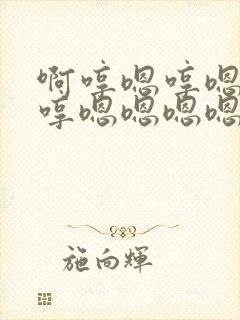 啊哼嗯哼嗯
哼嗯嗯嗯嗯
施向輝